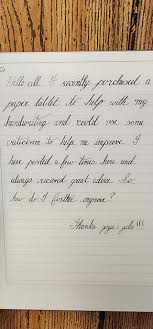 Hello all. I recently purchased a
paper tablet to help with my
handwriting and could use some
criticism to help me improve. I
have posted a few times here and
always received great advice. So,
how do I further improve?
Thanks guys + gals!!!